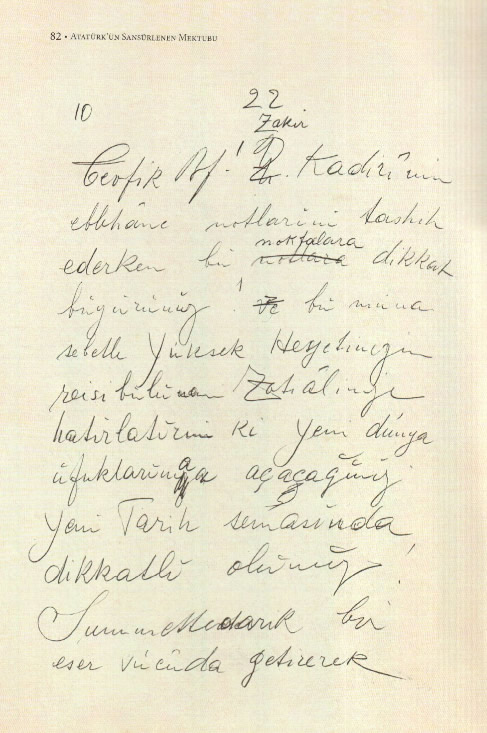 82 • ATATÜRK'ÜN SANSÜRLENEN MEKTUBU
10
22
Zakir
Tevfik Bf.! Kadirî'nin
notlarını tashih
noktalara
ederken bu notlara dikkat
! ve bu müna
sebetle Yüksek Heyetinizin
reisi bulunan Zatıâlinize
hatırlatırım ki yeni dünya
ufuklarınıza açacağınız
yeni Tarih semasında
dikkatli olunuz!
bir
eser vücuda getirerek